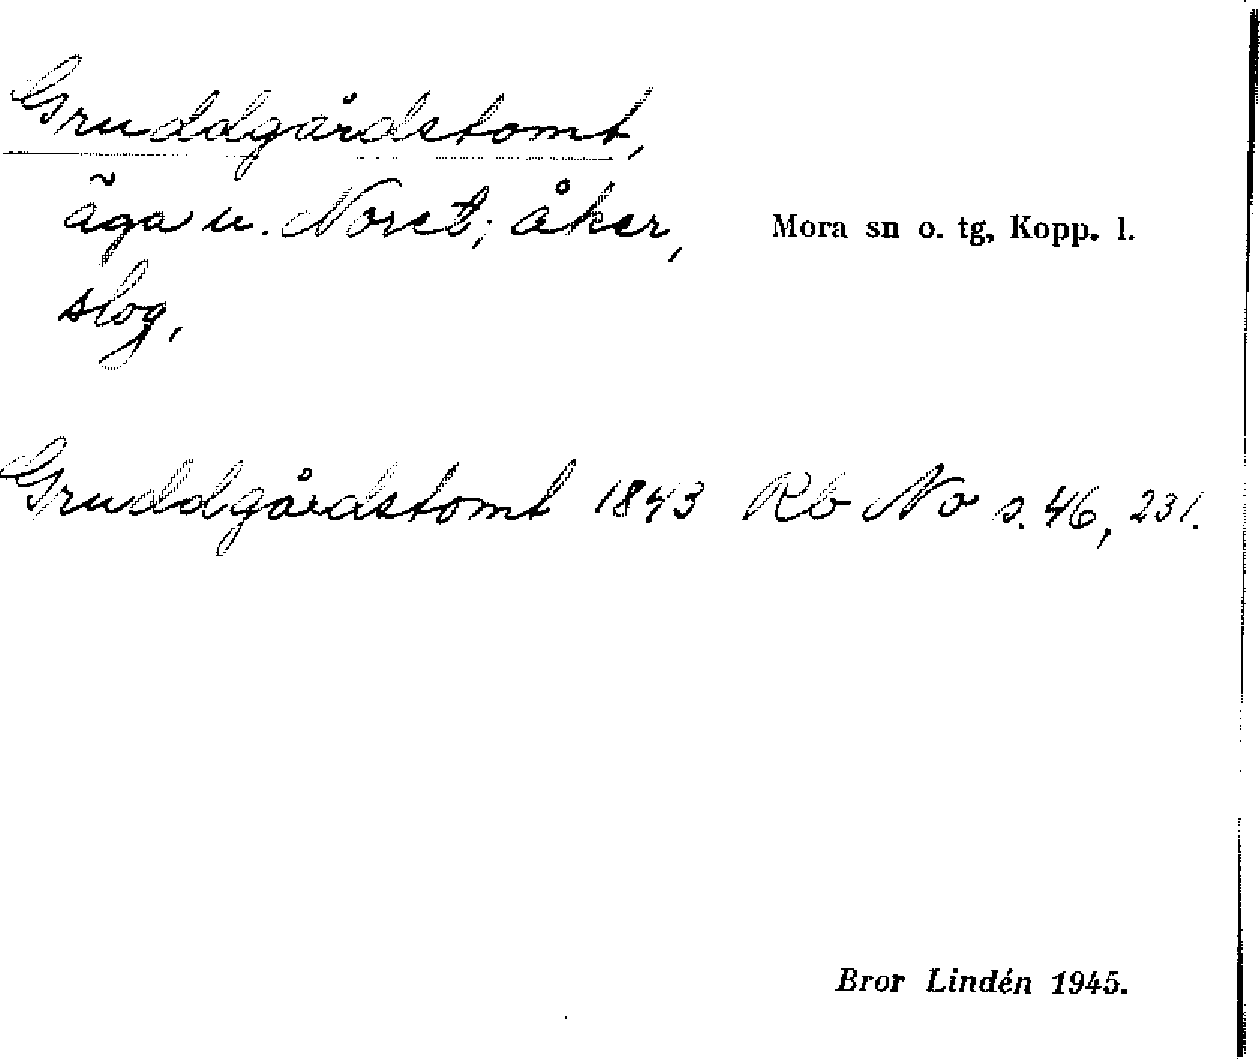 Gruddgårdstomt,
äga u. Noret; åker,
slog,
Mora sn o. tg, Kopp. l.
Gruddgårdstomt 1843 Rb No s. 46, 231.
Bror Lindén 1945.